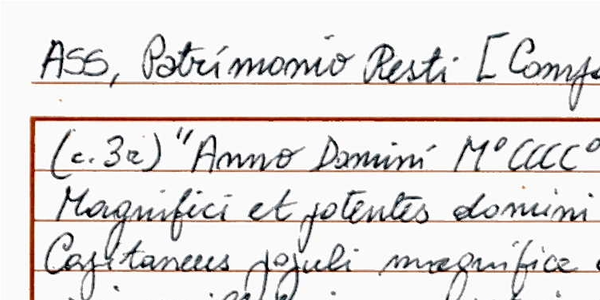 ASS, Patrimonio Resti [Comp
(c.3r) "Anno Domini M°CCCC°
Magnifici et potentes domini
Capitaneus populi magnifice